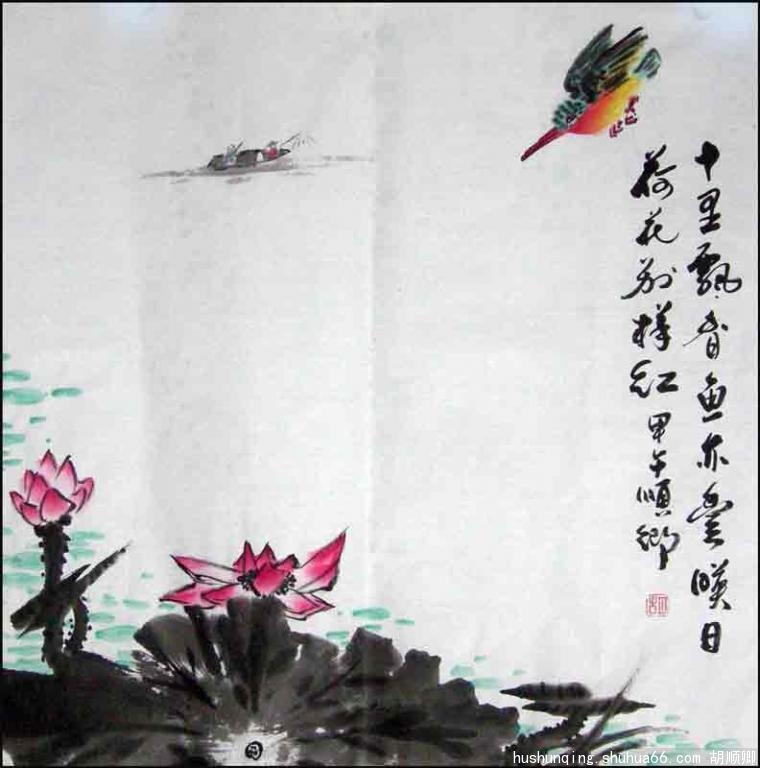 十里飘香鱼亦丰映日
荷花别样红
甲午顺卿
hushunqing.shuhua66.com 胡顺卿